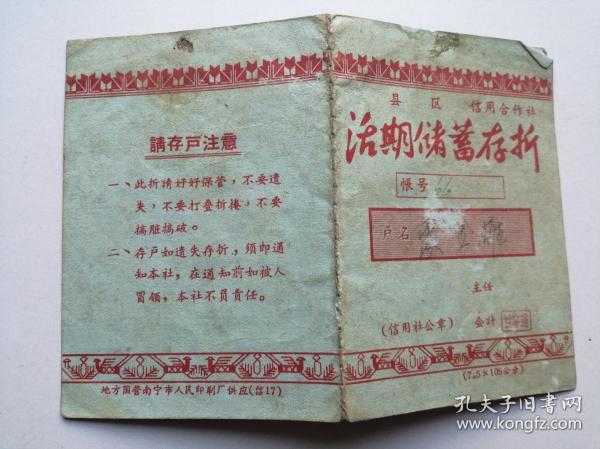 請存戸注意
一、此折請好好保管，不要遺
失，不要打叠折捲，不要
搞脏搞破。
二、存戸如遺失存折，須即通
知本社，在通知前如被人
冒領，本社不負責任。
地方国营南宁市人民印刷厂供应(信17)
县 区 信用合作社
活期储蓄存折
帳号 66
戸名
主任
(信用社公章) 会計
(7.5×105公分)
孔夫子旧书网
www.kongfz.com